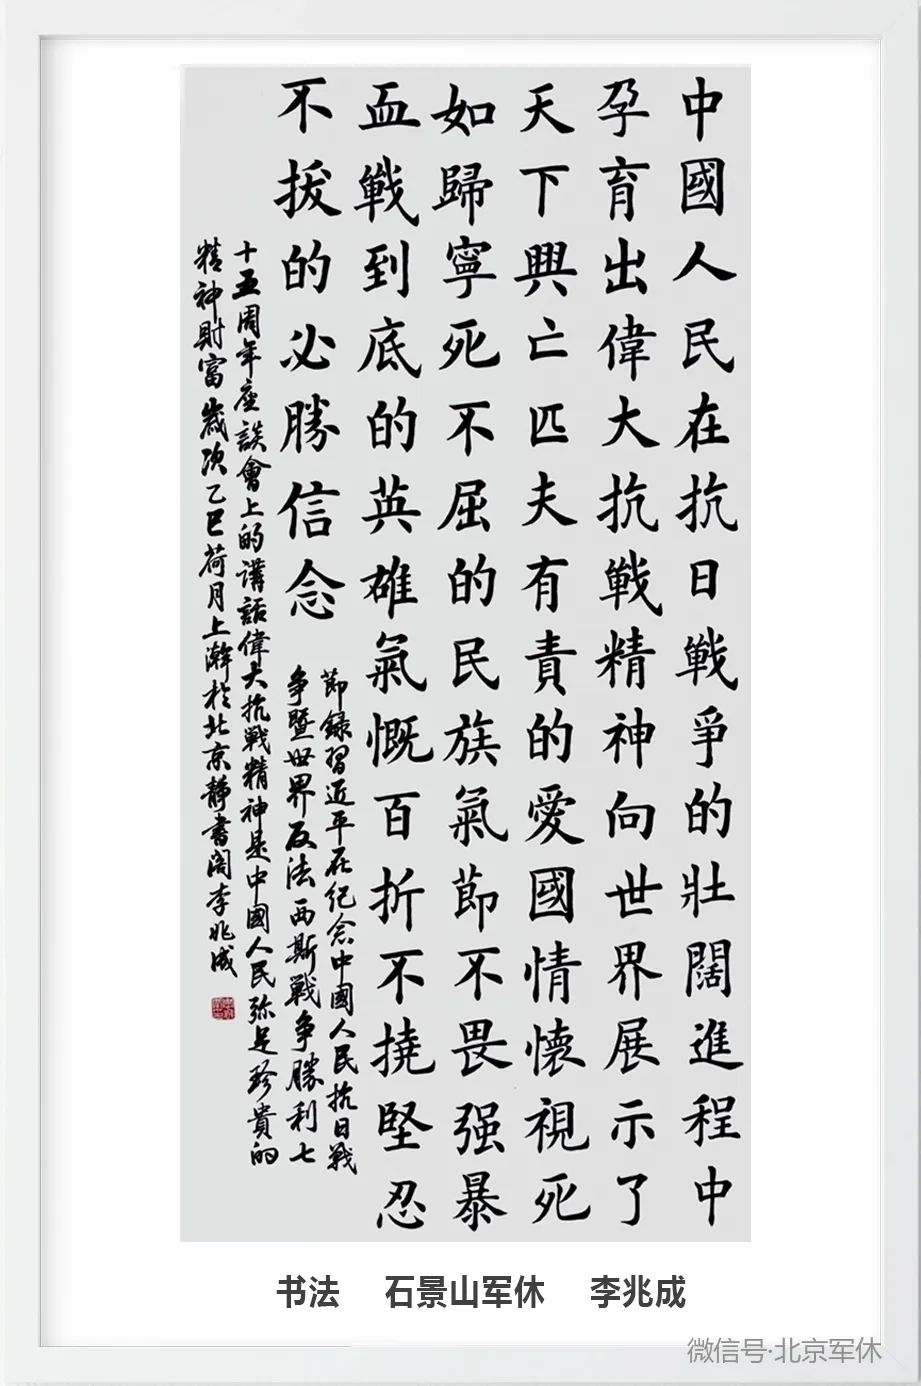 中國人民在抗日戰爭的壯闊進程中
孕育出偉大抗戰精神向世界展示了
天下興亡匹夫有責的愛國情懷視死
如歸寧死不屈的民族氣節不畏强暴
血戰到底的英雄氣慨百折不撓堅忍
不拔的必勝信念
節録習近平在紀念中國人民抗日戰
争暨世界反法西斯戰争勝利七
十五周年座談會上的講話偉大抗戰精神是中國人民弥足珍貴的
精神財富歲次乙巳荷月上澣於北京靜書閣李兆成
书法 石景山军休 李兆成
微信号·北京军休